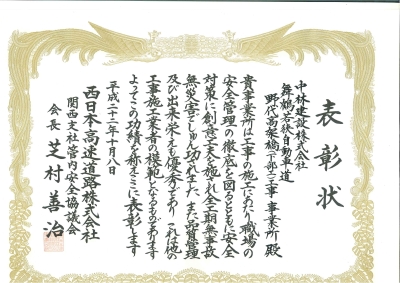 表彰状
中林建設株式会社
舞鶴若狭自動車道
野代高架橋下部工工事事業所 殿
貴事業所は工事の施工にあたり職場の
安全管理の徹底を図るとともに安全
対策に創意工夫を施され全工期無事故
無災害でしゅん功されました また品質管理
及び出来栄えも優秀であり これは他の
工事施工業者の模範となるものであります
よってこの功績を称えここに表彰します
平成二十二年十月八日
西日本高速道路株式会社
関西支社管内安全協議会
会長 芝村善治